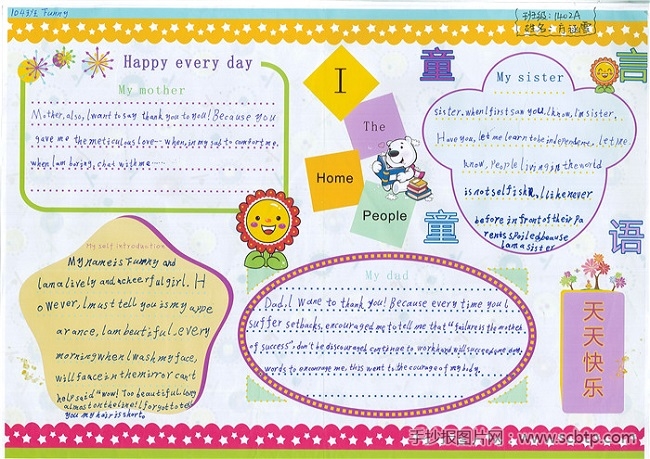 1043生 Funny
班级:1402A
姓名:方
Happy every day
My mother
Mother, also, I want to say thank you to you! Because you
gave me the meticulous love-- When, in my sad to comfort me.
when I am boring, chat with me······
I
The
Home
People
童
言
童
语
My sister
sister. when I first saw you, I know, I m sister.
Have you, let me learn to be independence, let me
know, people living in the world
is not selfish, like never
before in front of their pa
rents spoiled because
I am a sister
My self introduction
My name is Funny and
I am a lively and cheerful girl. H
owever, I must tell you is my appe
arance, I am beautiful. every
morning when I wash my face,
will face in the mirror can't
help said "wow! Too beautiful. long
almost on the line! I forgot to tell
you my hair is short.
My dad
Dad, I wane to thank you! Because every time you I
suffer setbacks, encouraged me to tell me that "failure is the mother
of success", don't be discouraged, continue to work hard, will succeed
words to encourage me, this went to the courage of my body.
天天快乐
手抄报图片网:www.scbtp.com